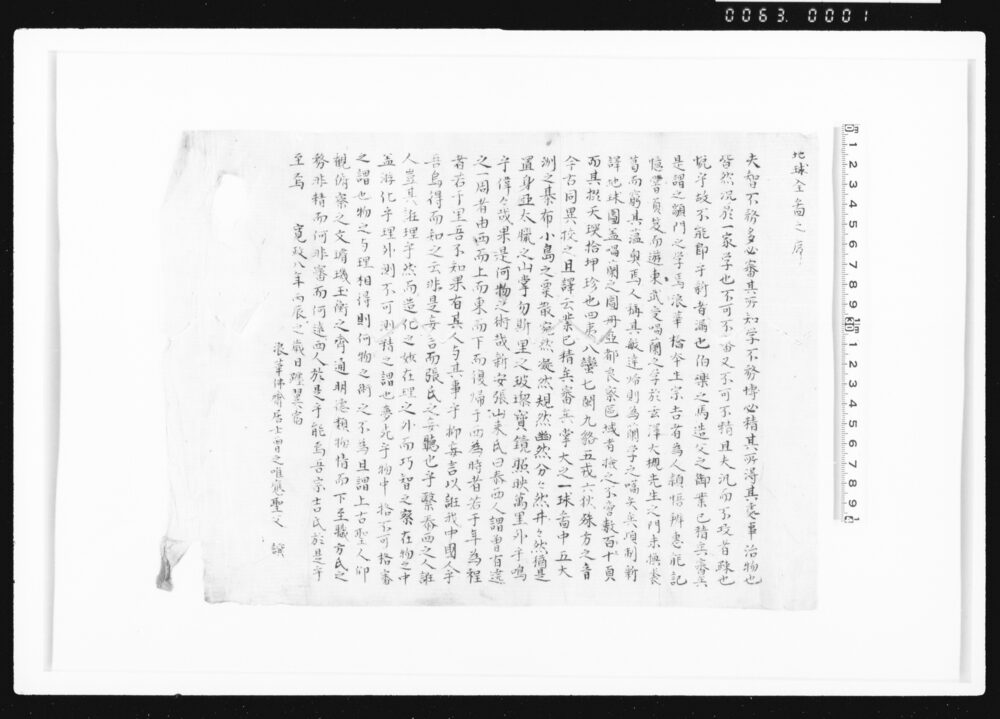 0063. 0001
地球全啚之序
夫智不務多必審其所知学不務博必精其所得其處事治物也
皆然况於一家学也不可不審又不可不精且夫汎而不攻者疎也
恍乎故不能即于新者漏也伯樂之馬造父之御業已精矣審矣
是謂之顓門之学焉浪華橋本生宗吉者為人穎悟辨惠能記
憶嘗負笈而遊東武受喎蘭之学於玄澤大槻先生之門未換裘
葛而窮其蘊奥焉人稱其敏達帰則為蘭学之嚆矢矣頃制新
譯地球圖盖喎蘭之圖冊並都良察區域者
而其摂天探拾坤珍也四夷八蠻七閩九貉五戎六狄殊方之音
今古同異校之且譯云業已精矣審矣掌大之一球啚中五大
洲之棊布小島之粟散宛然凝然規然幽然分々然井々然猶是
置身亜太臘之山掌勿斯里之玻瓈寶鏡照映萬里外乎嗚
乎偉哉果是何物之術哉新安張山来氏曰泰西人謂曽有遶
之一周者由西而上而東而下而復帰于西為時者若于年為程
者若于里吾不知果有其人与其事乎抑妄言以誑我中國人乎
吾烏得而知之云非是妄言而張氏之妄聽也乎繄泰西之人誑
人豈其誑理乎然而造化之妙在理之外而巧智之察在物之中
盖游化乎理外測不可測精之謂也夢先乎物中格不可格審
之謂也物之与理相得則何物之術之不為且謂上古聖人仰
観俯察之文璿璣玉衡之齊通明徳類物情而下至職方氏之
務非精而何非審而何遠西人於是乎能焉吾宗吉氏於是乎
至焉 寛政八年丙辰之歳日躔翼當
浪華佛齊居士曽之唯應聖父 譔
0 cm 1 2 3 4 5 6 7 8 9 10 1 2 3 4 5 6 7 8 9